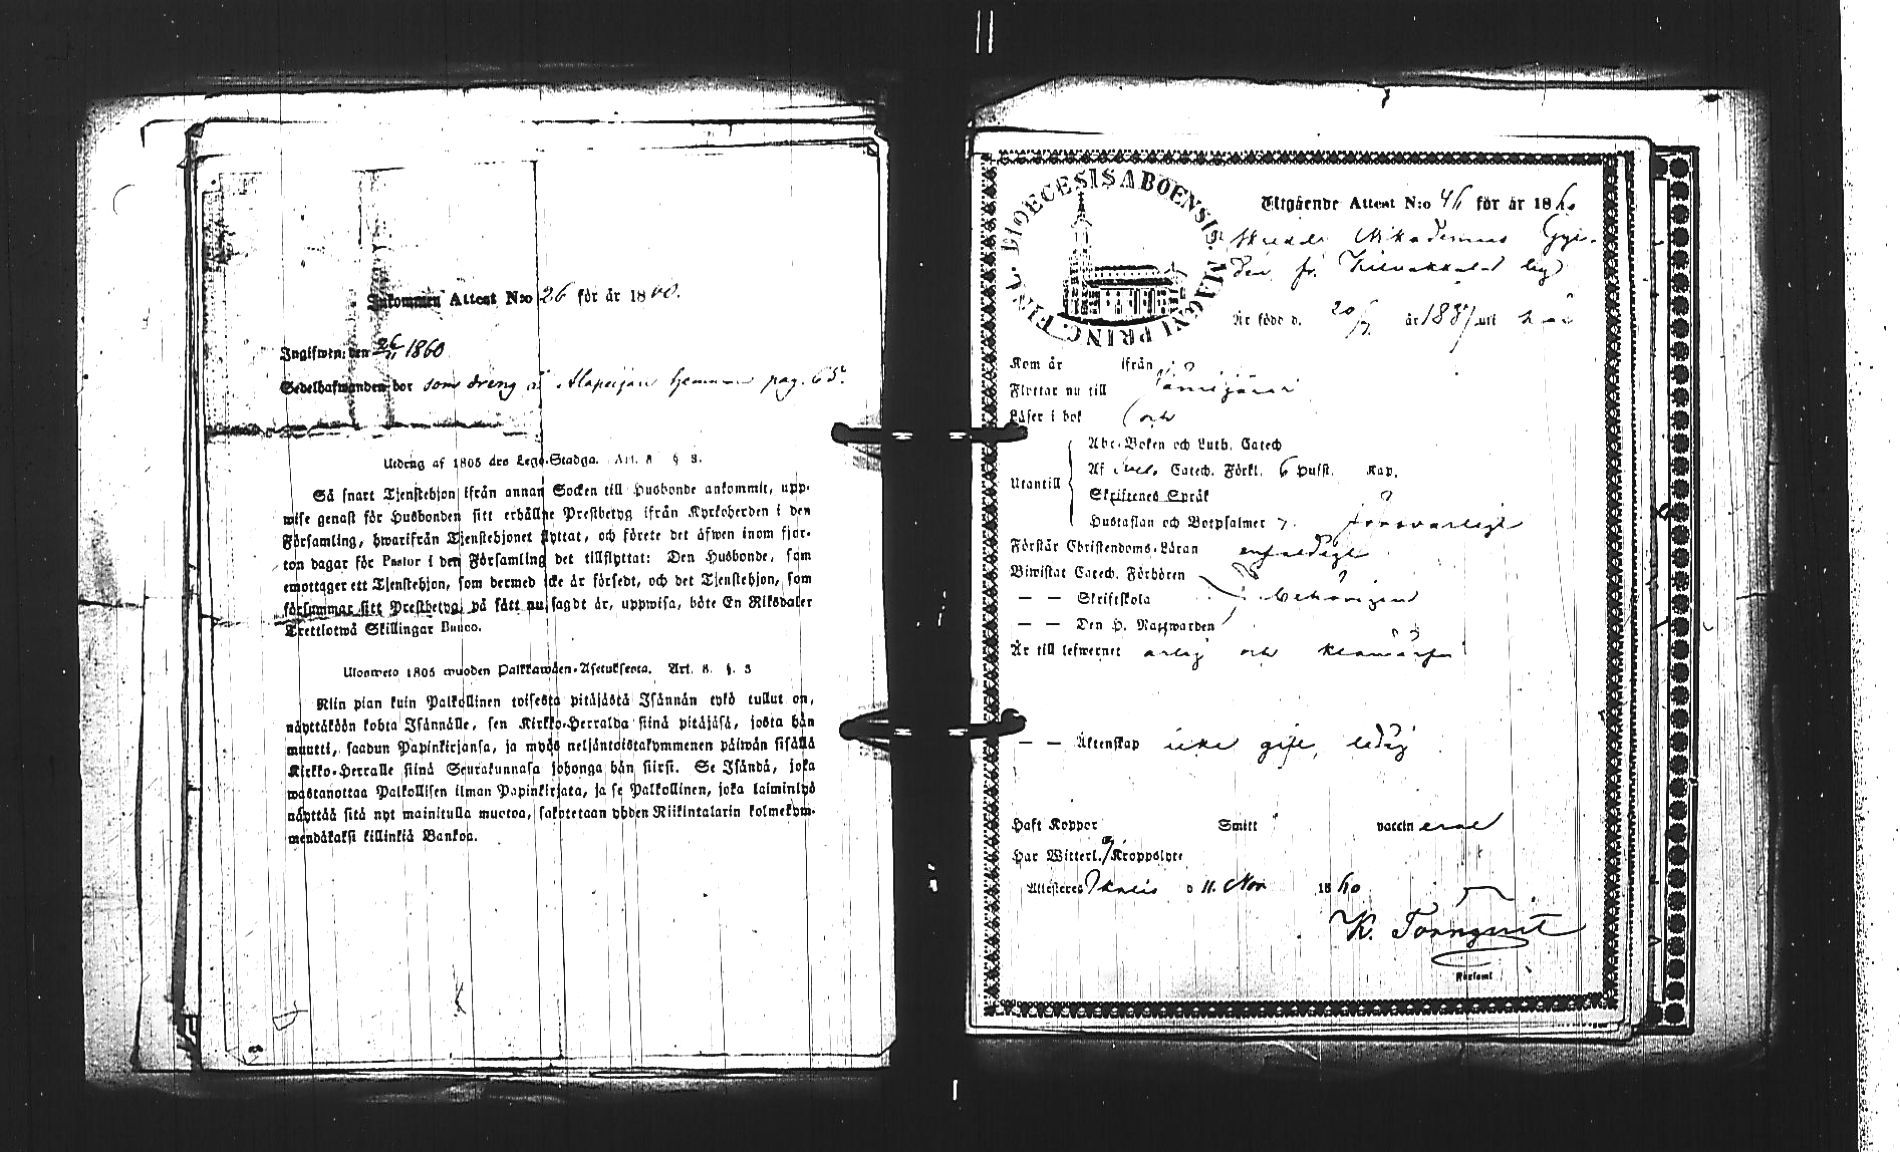 Inkommen Attest N:o 26 för år 1860.
Ingifwen: den 26/11 1860
Sedelhafwanden bor som dreng å hemman pag. 65.
Utdrag af 1805 års Lego-Stadga. Art. 8 § 3.
Så snart Tjenstehjon ifrån annan Socken till Husbonde ankommit, upp-
wise genast för Husbonden sitt erhållne Prestbetyg ifrån Kyrkoherden i den
Församling, hwarifrån Tjenstehjonet flyttat, och förete det äfwen inom fjor-
ton dagar för Pastor i den Församling det tillflyttat: Den Husbonde, som
emottager ett Tjenstehjon, som dermed icke är försedt, och det Tjenstehjon, som
försummar sitt Prestbetyg, på sätt nu sagdt är, uppwisa, böte En Riksdaler
Trettiotwå Skillingar Banco.
Ulosweto 1805 wuoden Palkkawäen-Asetuksesta. Art. 8. §. 3
Niin pian kuin Palkollinen toisesta pitäjästä Isännän tykö tullut on,
näyttäköön kohta Isännälle, sen Kirkko-Herralda siinä pitäjäsä, josta hän
muutti, saadun Papinkirjansa, ja myös neljäntoistakymmenen päiwän sisällä
Kirkko-Herralle siinä Seurakunnasa johonga hän siirsi. Se Isändä, joka
wastanottaa Palkollisen ilman Papinkirjata, ja se Palkollinen, joka laiminlyö
näyttää sitä nyt mainitulla muotoa, sakotetaan yhden Riikintalarin kolmekym-
mendäkaksi killinkiä Bankoa.
FINL. DIOECESIS ABOENSIS. MAGNI PRINC.
Utgående Attest N:o 46 för år 1860
fr. by
Är född d. 20/7 år 1837 uti här
Kom år ifrån
Flyttar nu till Tämijärvi
Läser i bok
Abc-Boken och Luth. Catech
Af Catech. Förkl. 6 Pusst. Kap.
Utantill
Skriftenes Språk
Hustaflan och Botpsalmer 7. försvarligt
Förstår Christendoms-Läran enfaldigt
Biwistat Catech. Förhören
— — Skriftskola behörigen
— — Den H. Nattwarden
Är till lefwernet ärlig och
— — Äktenskap icke gift, ledig
Haft Koppor Smitt vaccinerad
Har Witterl. Kroppslyte
Attesteres Ikalis d 11. Nov 1860
K. Törnqvist